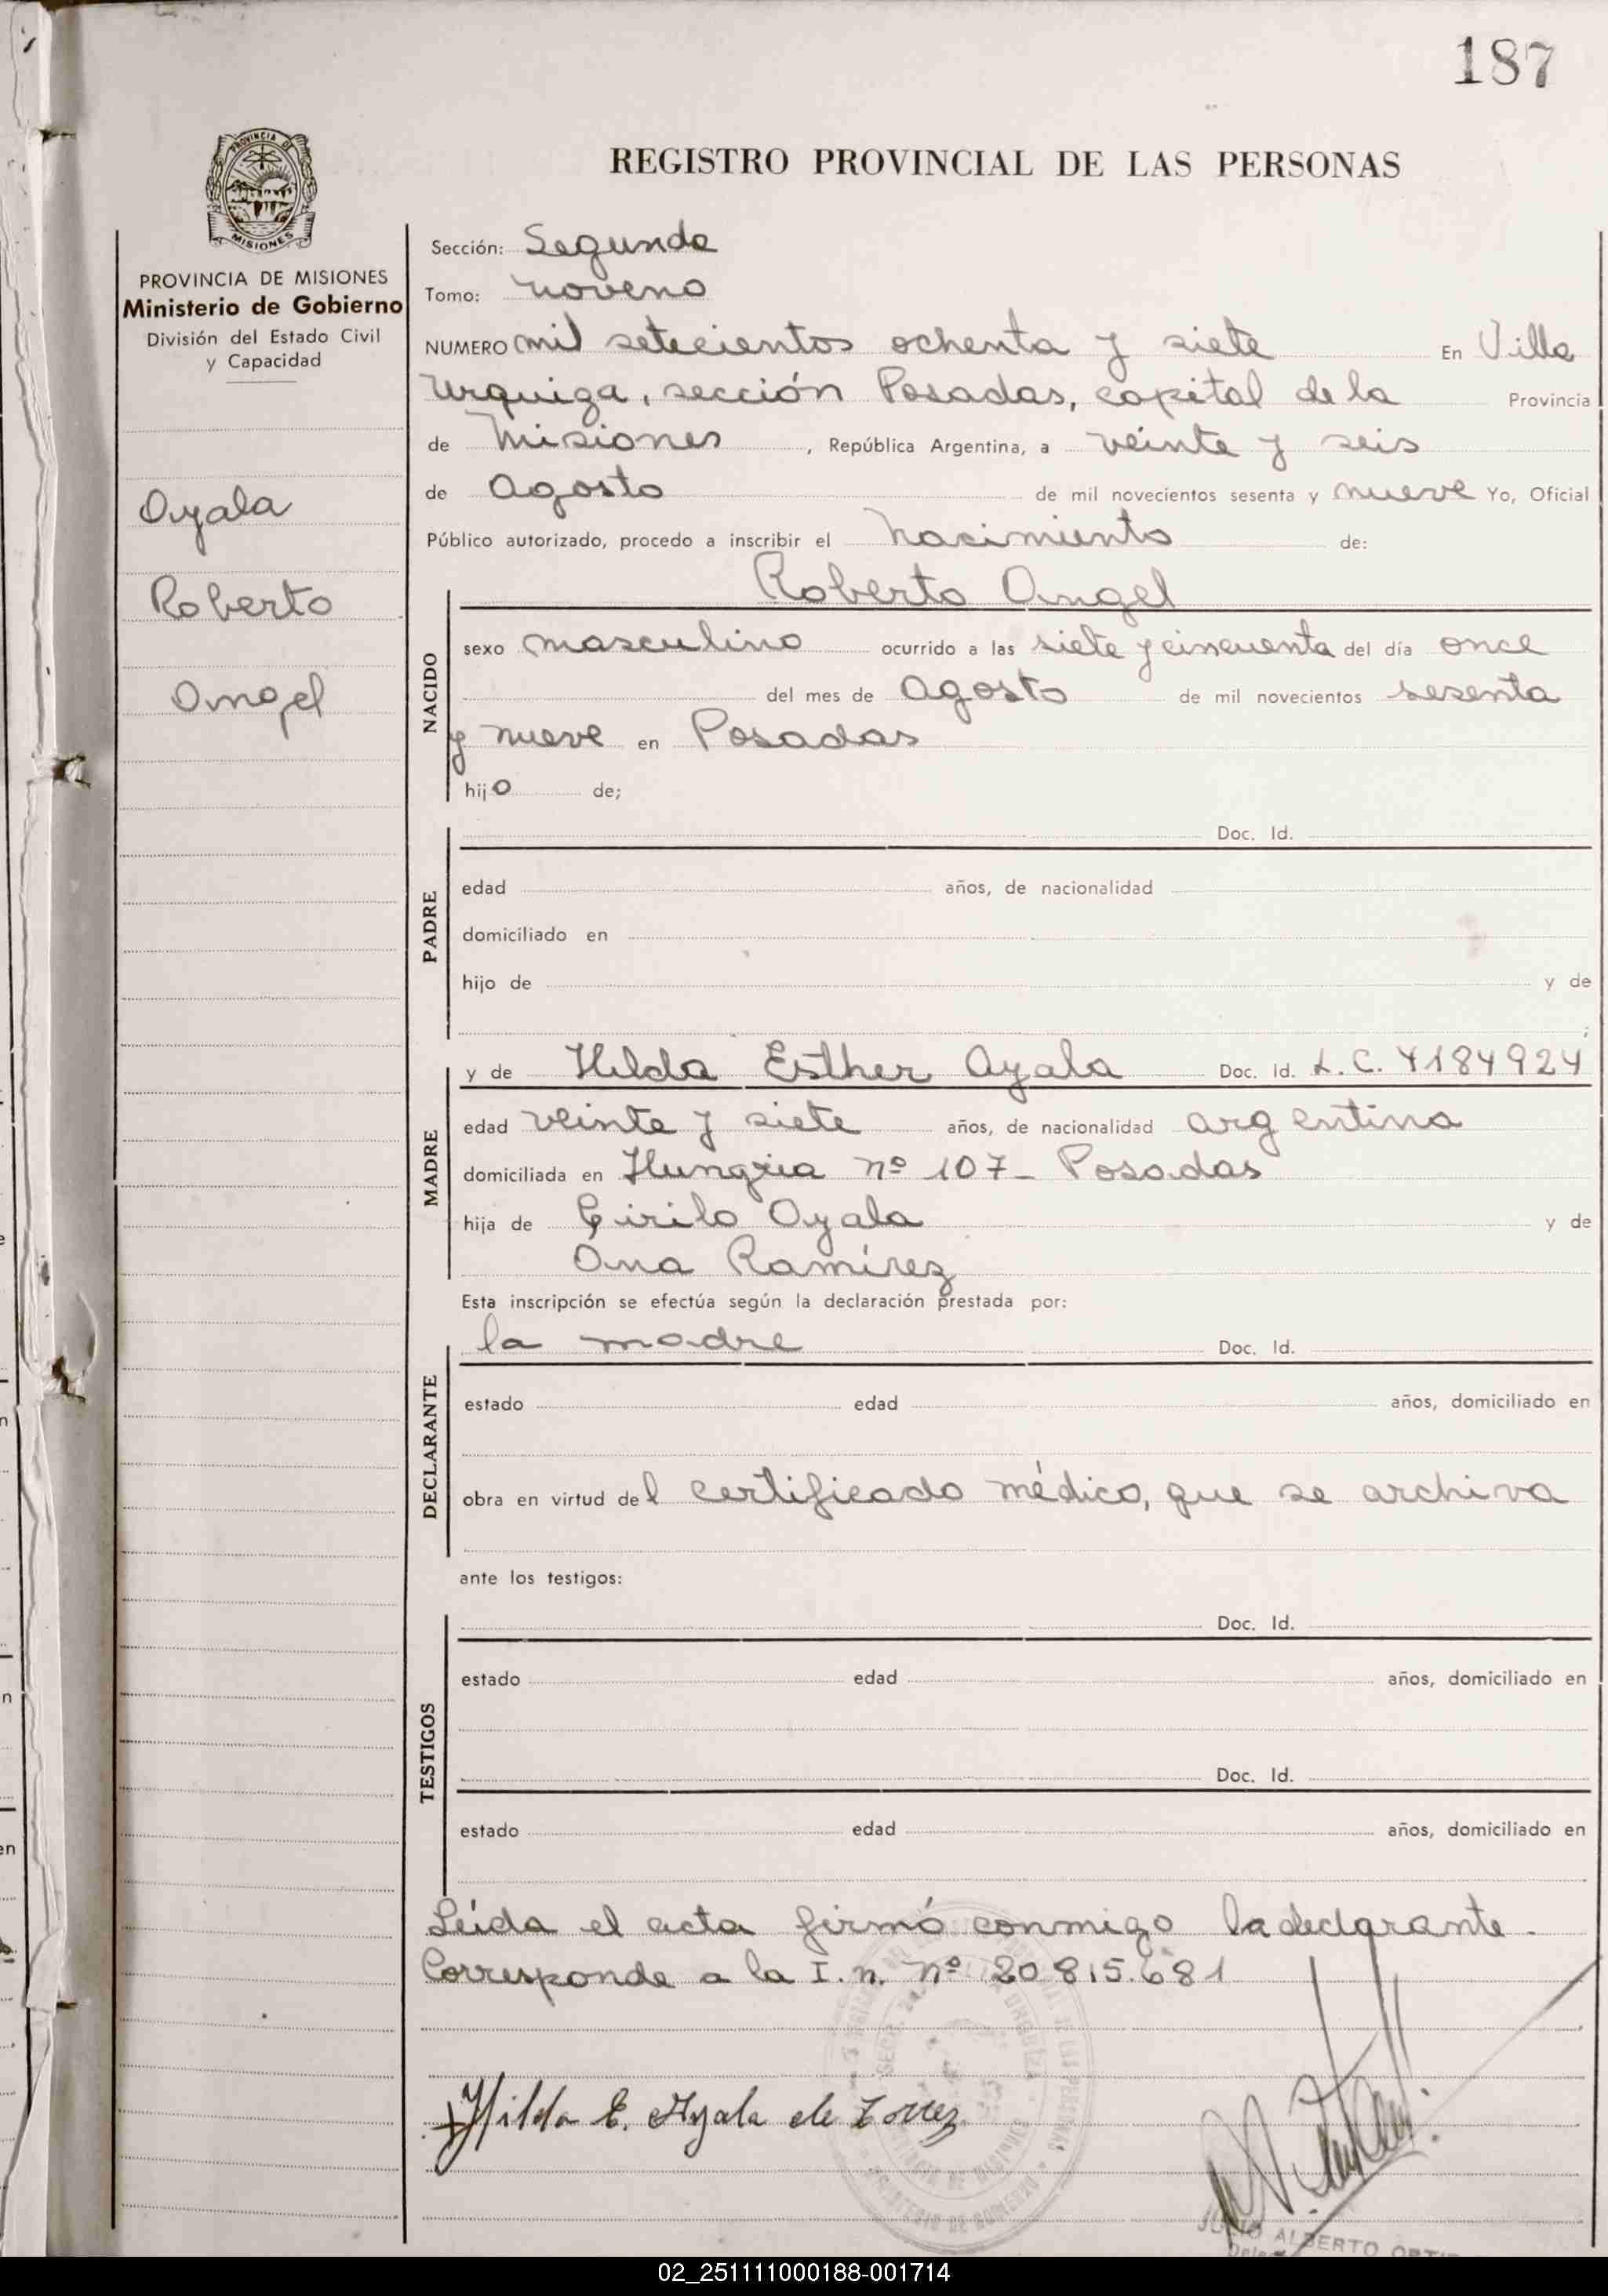 187
PROVINCIA DE
MISIONES
PROVINCIA DE MISIONES
Ministerio de Gobierno
División del Estado Civil
y Capacidad
Ayala
Roberto
Angel
REGISTRO PROVINCIAL DE LAS PERSONAS
Sección: Segunda
Tomo: noveno
NUMERO mil setecientos ochenta y siete En Villa
Urquiza, sección Posadas, capital de la Provincia
de Misiones, República Argentina, a veinte y seis
de Agosto de mil novecientos sesenta y nueve Yo, Oficial
Público autorizado, procedo a inscribir el nacimiento de:
Roberto Angel
NACIDO
sexo masculino ocurrido a las siete y cincuenta del día once
del mes de Agosto de mil novecientos sesenta
y nueve en Posadas
hijo de;
PADRE
Doc. Id.
edad años, de nacionalidad
domiciliado en
hijo de y de
;
MADRE
y de Hilda Esther Ayala Doc. Id. L.C. 4184924
edad veinte y siete años, de nacionalidad argentina
domiciliada en Hungria nº 107 - Posadas
hija de Cirilo Ayala y de
Ana Ramírez
Esta inscripción se efectúa según la declaración prestada por:
DECLARANTE
la madre Doc. Id.
estado edad años, domiciliado en
obra en virtud del certificado médico, que se archiva
ante los testigos:
TESTIGOS
Doc. Id.
estado edad años, domiciliado en
Doc. Id.
estado edad años, domiciliado en
Leída el acta firmó conmigo la declarante.
Corresponde a la I.n. nº 20.815.681
Hilda E. Ayala de Torrez
ALBERTO
02_251111000188-001714